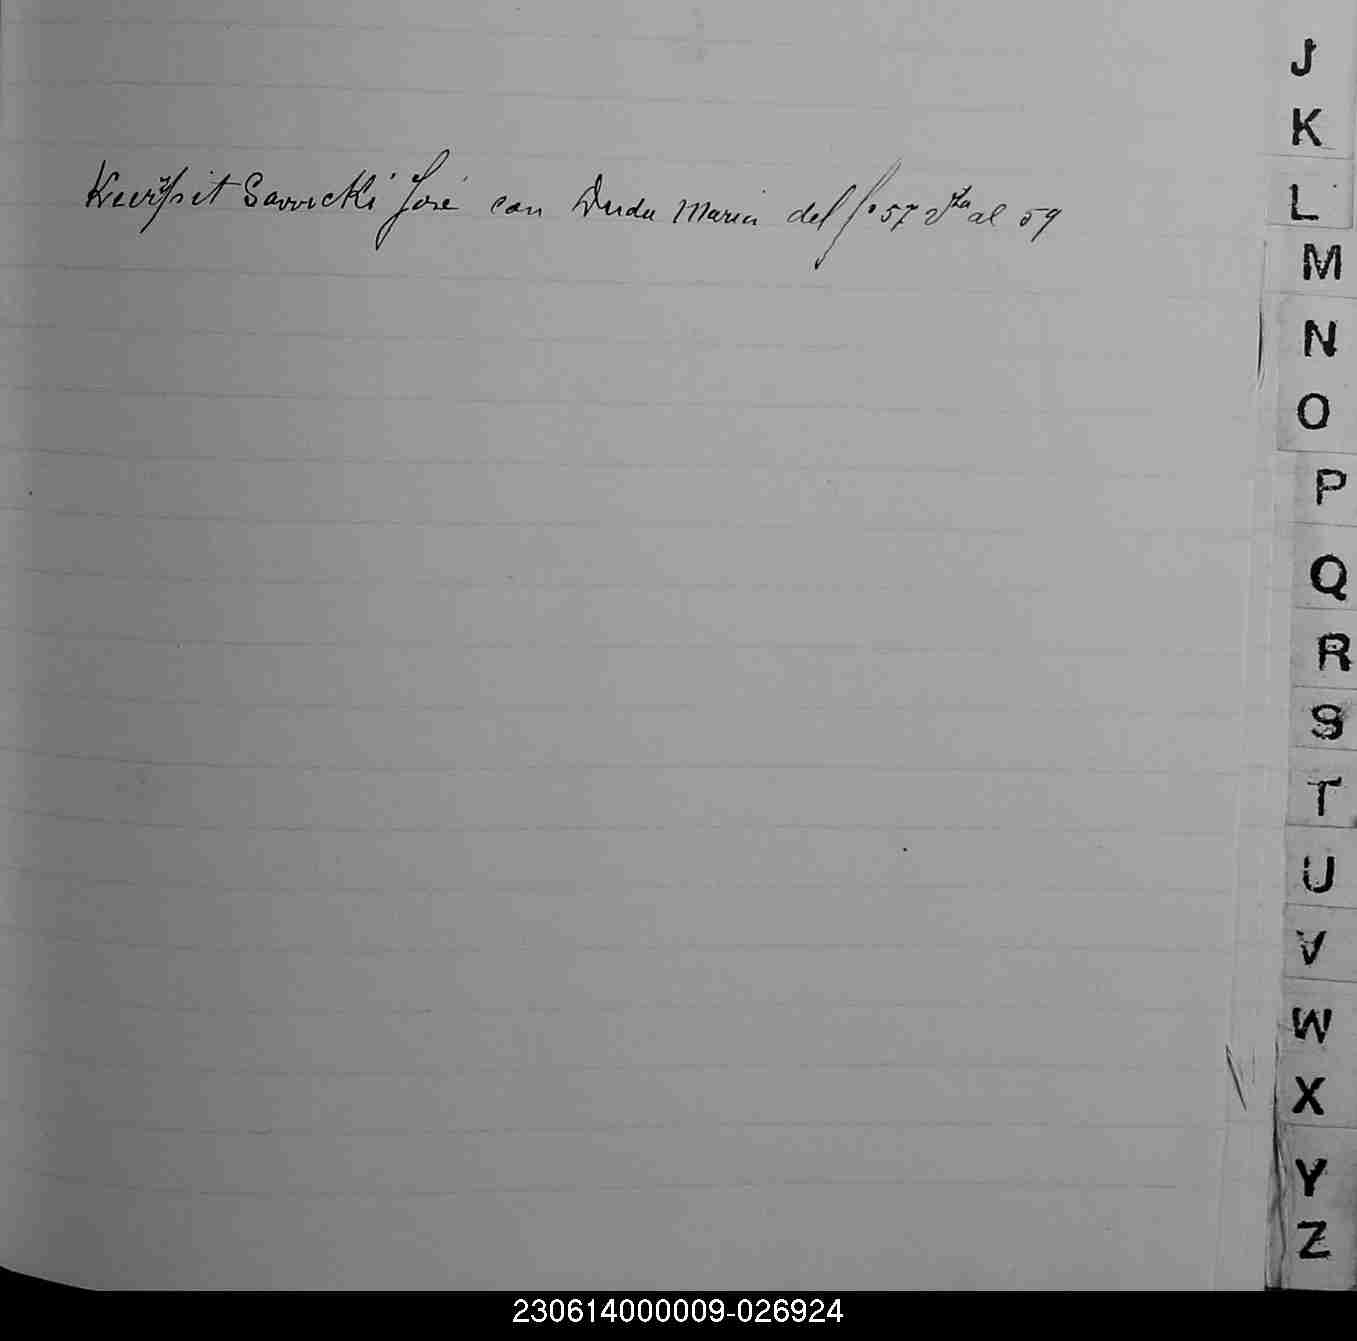 Savvicki José con Duda Maria del fº 57 vta al 59
J
K
L
M
N
O
P
Q
R
S
T
U
V
W
X
Y
Z
230614000009-026924